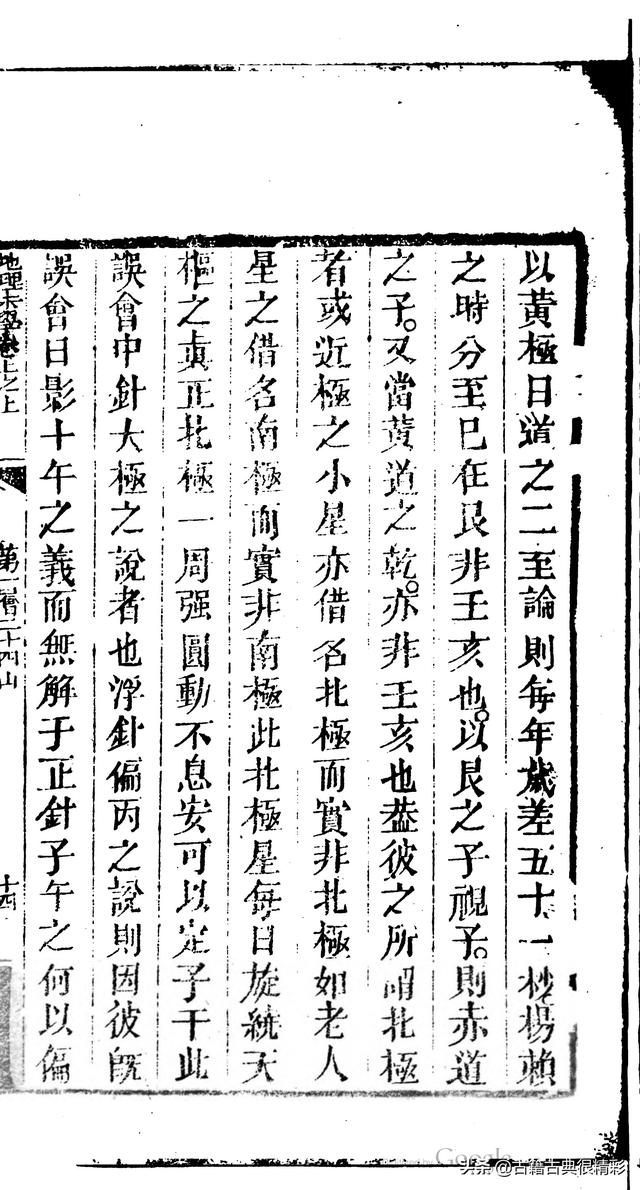 以黃極日道之二至論則每年歲差五十一秒楊賴
之時分至已在艮非壬亥也。以艮之子視子。則赤道
之子。又當黃道之乾。亦非壬亥也葢彼之所謂北極
者或近極之小星亦借名北極而實非北極如老人
星之借名南極而實非南極此北極星每日旋繞天
樞之真正北極一周强圓動不息安可以定子午此
誤會中針大極之說者也浮針偏丙之說則因彼旣
誤會日影十午之義而無解于正針子午之何以偏
地理末學卷上之上
第一層二十四山
十四
Google
头条@古籍古典很精彩